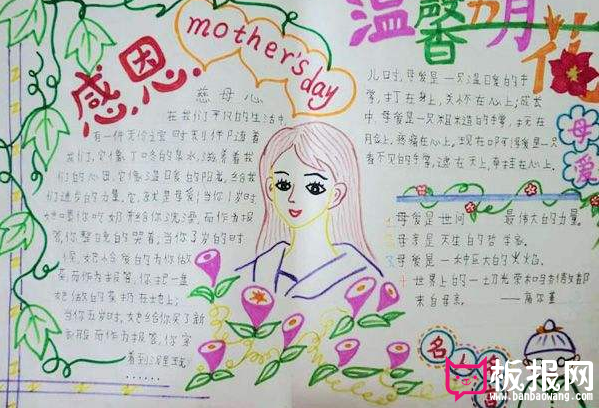 感恩
mother's day
温馨五月花
慈母心
在我们平凡的生活中,
有一种无价之宝时刻伴随着
我们,它像叮咚的泉水,滋养着我
们的心田,它像温暖的阳光,给我
们进步的力量,它,就是母爱!当你1岁时
她喂你吃奶并给你洗澡,而作为报
答,你整晚的哭着;当你3岁的时
候,她怜爱的为你做
菜,而作为报答,你把一盘
她做的菜扔在地上;
当你五岁时,她给你买了新
衣服而作为报答,你穿
着到泥
儿时,母爱是一只温暖的手
掌,打在身上,关怀在心上;成长
中,母爱是一只粗糙的手掌,抹在
脸上,疼痛在心上,现在呀母爱是一只
看不见的手掌,远在天上,牵挂在心上。
母爱
母爱是世间最伟大的力量。
母亲是天生的哲学家。
母爱是一种巨大的火焰。
世界上的一切光荣和骄傲都
来自母亲。——高尔基
名
板报网
www.banbaowang.com